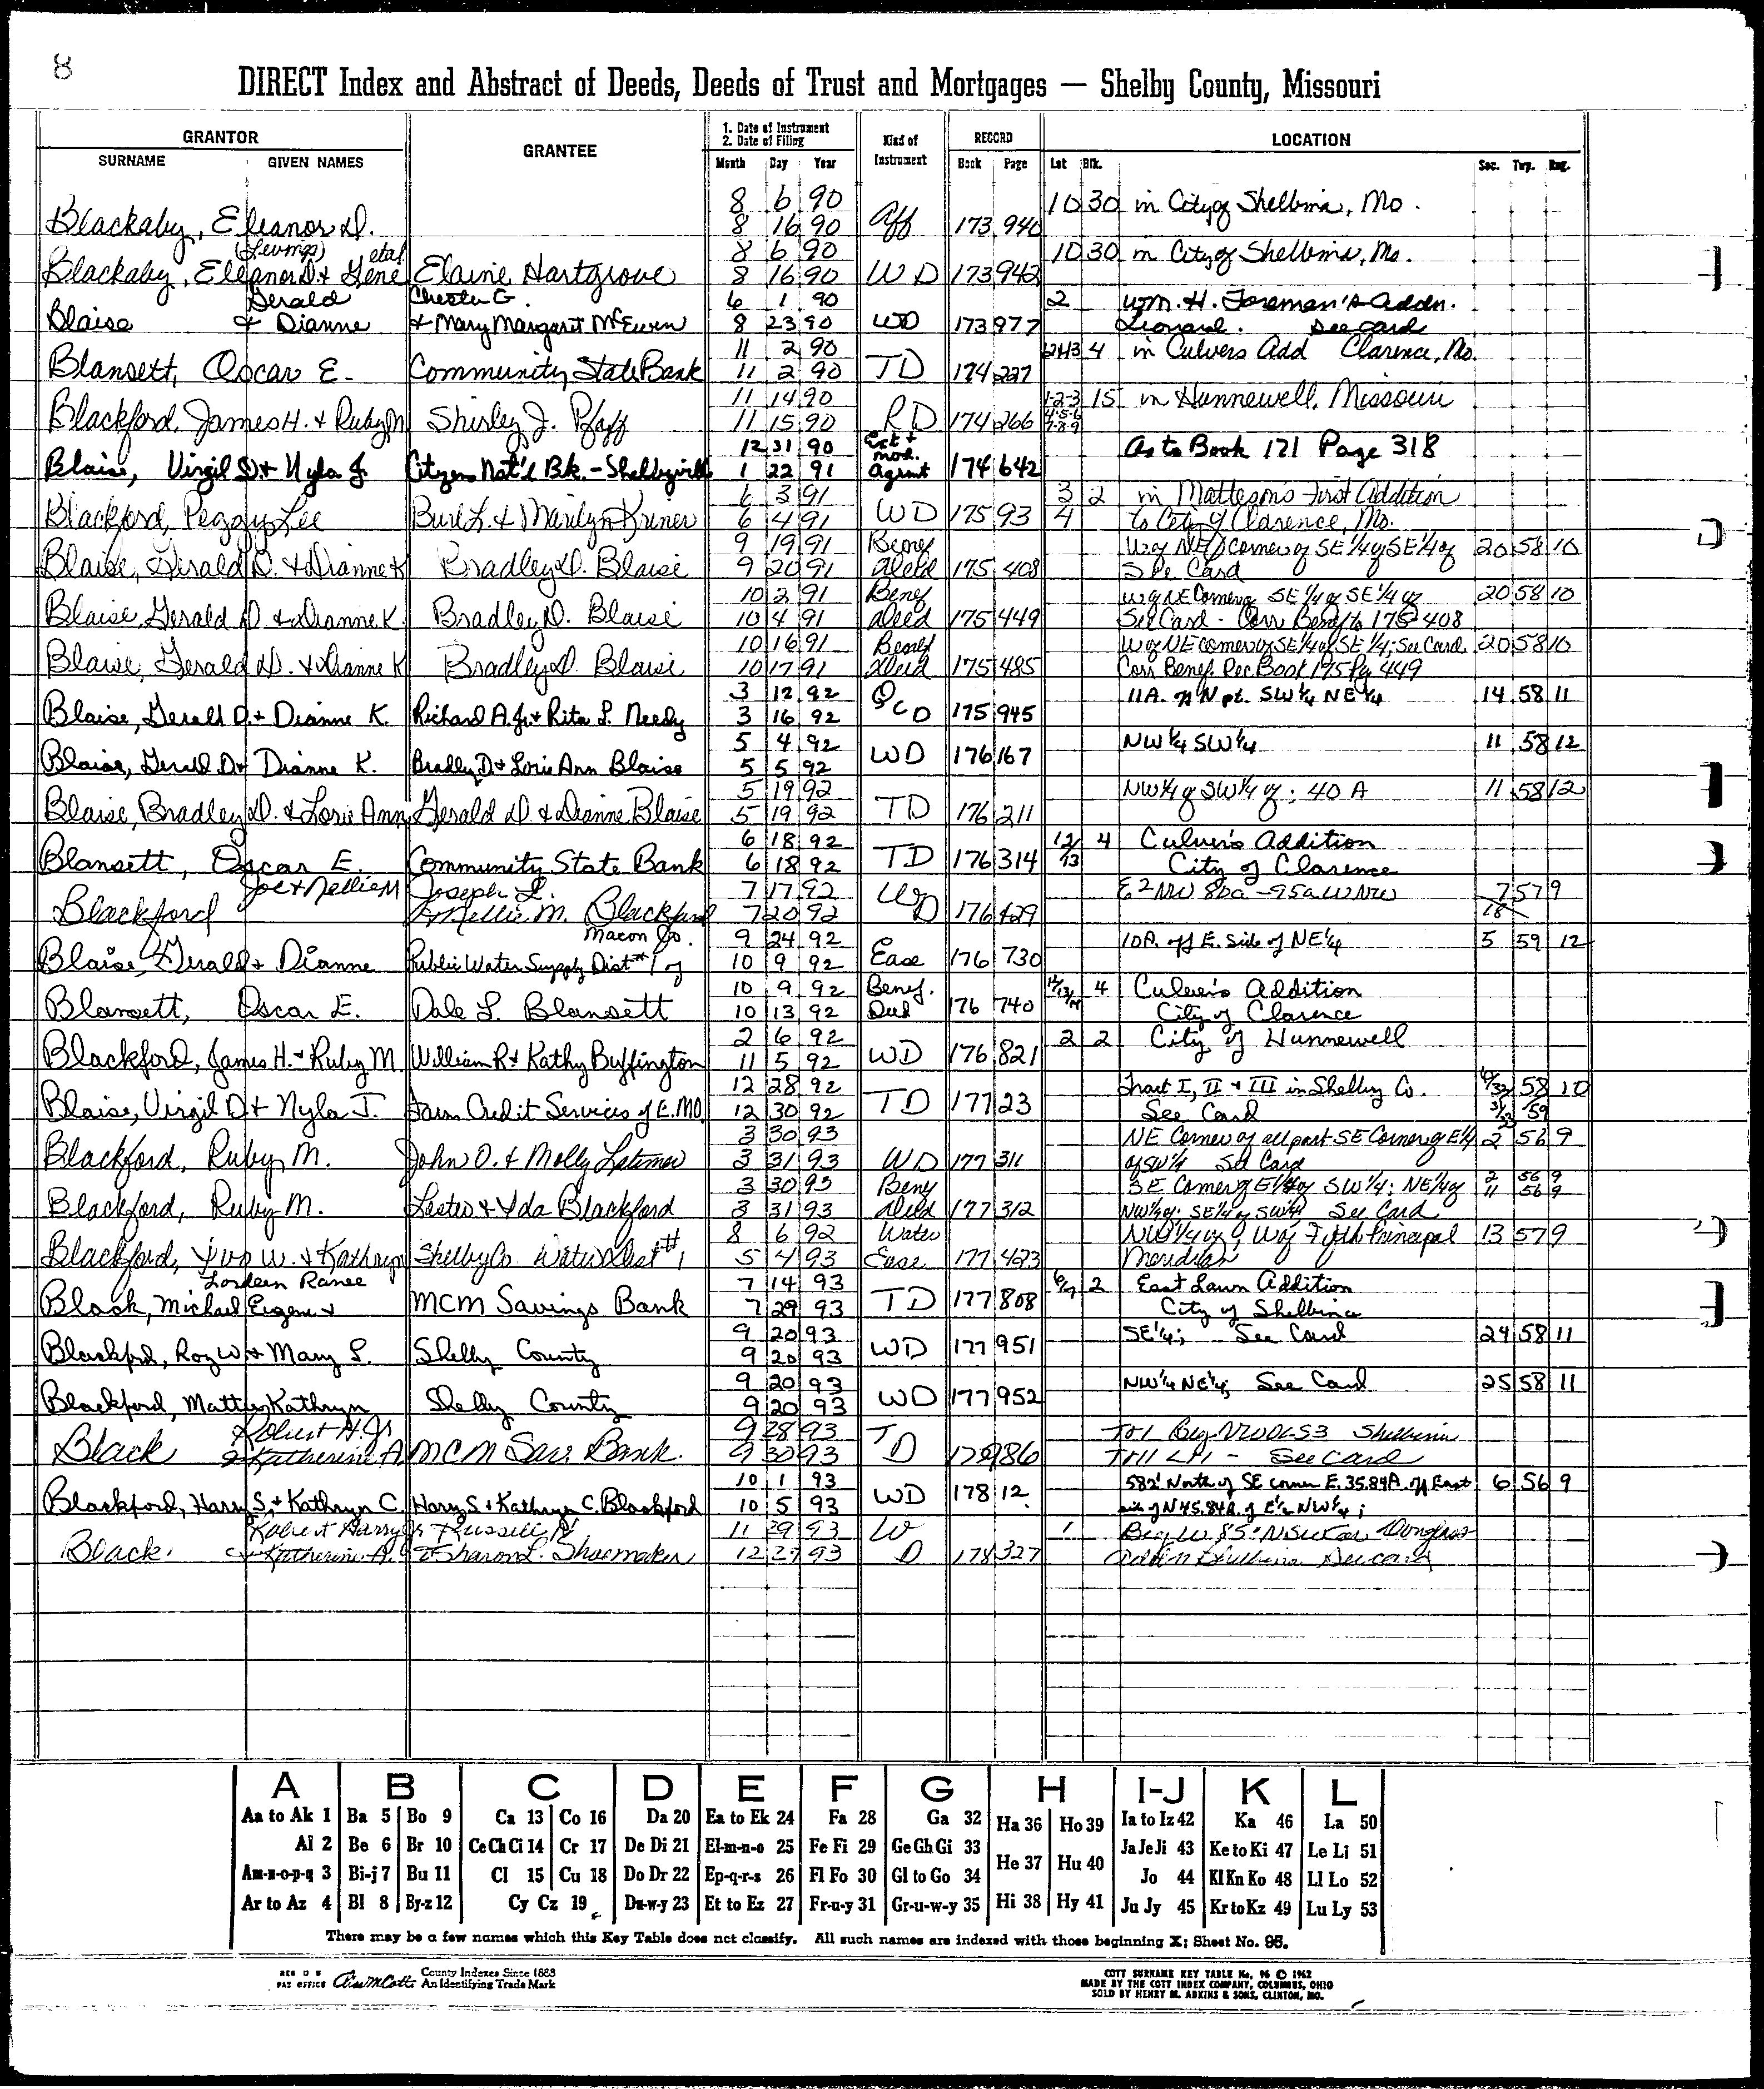 8
DIRECT Index and Abstract of Deeds, Deeds of Trust and Mortgages — Shelby County, Missouri
GRANTOR GRANTEE 1. Date of Instrument 2. Date of Filing Kind of Instrument RECORD LOCATION
SURNAME GIVEN NAMES Month Day Year Book Page Lot Blk. Sec. Twp. Rng.
8 6 90 10 30 in City of Shelbina, Mo.
Blackaby, Eleanor D. 8 16 90 Aff 173 940
(Levings) etal 8 6 90 10 30 in City of Shelbina, Mo.
Blackaby, Eleanor D. & Gene Elaine Hartgrove 8 16 90 WD 173 942
Gerald Chester G. 6 1 90 2 Wm. H. Foreman's Addn.
Blaise & Dianne & Mary Margaret McEwen 8 23 90 WD 173 977 Leonard. See card
11 2 90 4 in Culvers Add Clarence, Mo.
Blansett, Oscar E. Community State Bank 11 2 90 TD 174 227
11 14 90 1-2-3 15 in Hunnewell, Missouri
Blackford, James H. & Ruby M Shirley J. Pfaff 11 15 90 RD 174 266 4-5-6 7-8-9
12 31 90 Ext + mod. As to Book 171 Page 318
Blaise, Virgil D. & Nyla J. Citizens Nat'l Bk. - Shelbyville 1 22 91 Agent 174 642
6 3 91 3 2 in Matteson's First Addition
Blackford, Peggy Lee Burl L. & Marilyn Kriner 6 4 91 WD 175 93 4 to City of Clarence, Mo.
9 19 91 Benef W of NE corner of SE 1/4 of SE 1/4 of 20 58 10
Blaise, Gerald D. & Dianne K Bradley D. Blaise 9 20 91 Deed 175 408 See Card
10 2 91 Benef W of NE Corner of SE 1/4 of SE 1/4 of 20 58 10
Blaise, Gerald D. & Dianne K. Bradley D. Blaise 10 4 91 Deed 175 449 See Card - Corr Benef to 175 408
10 16 91 Benef W of NE corner of SE 1/4 of SE 1/4; See Card 20 58 10
Blaise, Gerald D. & Dianne K Bradley D. Blaise 10 17 91 Deed 175 485 Corr Benef. Rec Book 175 Pg 449
3 12 92 11A. of N pt. SW 1/4 NE 1/4 14 58 11
Blaise, Gerald D. & Dianne K. Richard A. Jr & Rita L. Neely 3 16 92 QCD 175 945
5 4 92 NW 1/4 SW 1/4 11 58 12
Blaise, Gerald D. & Dianne K. Bradley D. & Lorie Ann Blaise 5 5 92 WD 176 167
5 19 92 NW 1/4 of SW 1/4 of; 40 A 11 58 12
Blaise, Bradley D. & Lorie Ann Gerald D & Dianne Blaise 5 19 92 TD 176 211
6 18 92 12/13 4 Culver's Addition
Blansett, Oscar E. Community State Bank 6 18 92 TD 176 314 City of Clarence
Joe & Nellie M Joseph L. 7 17 92 E 2 NW 80a - 95a W NW 7 57 9
Blackford & Nellie M. Blackford 7 20 92 WD 176 429 18
Macon Co. 9 24 92 10A. off E. side of NE 1/4 5 59 12
Blaise, Gerald & Dianne Public Water Supply Dist #1 of 10 9 92 Ease 176 730
10 9 92 Benef. 4 Culver's Addition
Blansett, Oscar E. Dale L. Blansett 10 13 92 Deed 176 740 City of Clarence
2 6 92 2 2 City of Hunnewell
Blackford, James H. & Ruby M. William R. & Kathy Buffington 11 5 92 WD 176 821
12 28 92 Tract I, II & III in Shelby Co. 58 10
Blaise, Virgil D. & Nyla J. Farm Credit Services of E. MO. 12 30 92 TD 177 23 See Card 59
3 30 93 NE Corner of all part SE Corner of E 1/2 2 56 9
Blackford, Ruby M. John O. & Molly Latimer 3 31 93 WD 177 311 of SW 1/4 See Card
3 30 93 Benef SE Corner of E 1/2 of SW 1/4; NE 1/4 of 2 56 9 11 56 9
Blackford, Ruby M. Lester & Ida Blackford 3 31 93 Deed 177 312 NW 1/4 of; SE 1/4 of SW 1/4 See Card
8 6 92 Water NW 1/4 of W of Fifth Principal 13 57 9
Blackford, Ivo W. & Kathryn Shelby Co. Water Dist #1 5 4 93 Ease 177 473 Meridian
Lordeen Ranee 7 14 93 6/7 2 East Lawn Addition
Black, Michael Eugene & MCM Savings Bank 7 29 93 TD 177 808 City of Shelbina
9 20 93 SE 1/4; See Card 24 58 11
Blackford, Roy W. & Mary L. Shelby County 9 20 93 WD 177 951
9 20 93 NW 1/4 NE 1/4; See Card 25 58 11
Blackford, Mattie Kathryn Shelby County 9 20 93 WD 177 952
Robert H. Jr 9 28 93 Shelbina
Black & Katherine A. MCM Sav. Bank. 9 30 93 TD 986 See Card
10 1 93 582' North of SE corner E. 35.84A. of East 6 56 9
Blackford, Harry S. & Kathryn C. Harry S. & Kathryn C. Blackford 10 5 93 WD 178 12 side of N 45.84A. of E 1/2 NW 1/4;
Robert Harry Jr Russell 11 29 93 1 Beg W 85' N SW Cor Douglass
Black. & Katherine A. & Sharon L. Shoemaker 12 27 93 WD 178 327 Addn Shelbina See card
A B C D E F G H I-J K L
Aa to Ak 1 Ba 5 Bo 9 Ca 13 Co 16 Da 20 Ea to Ek 24 Fa 28 Ga 32 Ha 36 Ho 39 Ia to Iz 42 Ka 46 La 50
Al 2 Be 6 Br 10 Ce Ch Ci 14 Cr 17 De Di 21 El-m-n-o 25 Fe Fi 29 Ge Gh Gi 33 He 37 Hu 40 Ja Je Ji 43 Ke to Ki 47 Le Li 51
Am-n-o-p-q 3 Bi-j 7 Bu 11 Cl 15 Cu 18 Do Dr 22 Ep-q-r-s 26 Fl Fo 30 Gl to Go 34 Jo 44 Kl Kn Ko 48 Ll Lo 52
Ar to Az 4 Bl 8 By-z 12 Cy Cz 19 Du-w-y 23 Et to Ez 27 Fr-u-y 31 Gr-u-w-y 35 Hi 38 Hy 41 Ju Jy 45 Kr to Kz 49 Lu Ly 53
There may be a few names which this Key Table does not classify. All such names are indexed with those beginning X; Sheet No. 95.
REG U S PAT OFFICE County Indexes Since 1888 An Identifying Trade Mark
COTT SURNAME KEY TABLE No. 96 © 1962
MADE BY THE COTT INDEX COMPANY, COLUMBUS, OHIO
SOLD BY HENRY M. ADKINS & SONS, CLINTON, MO.